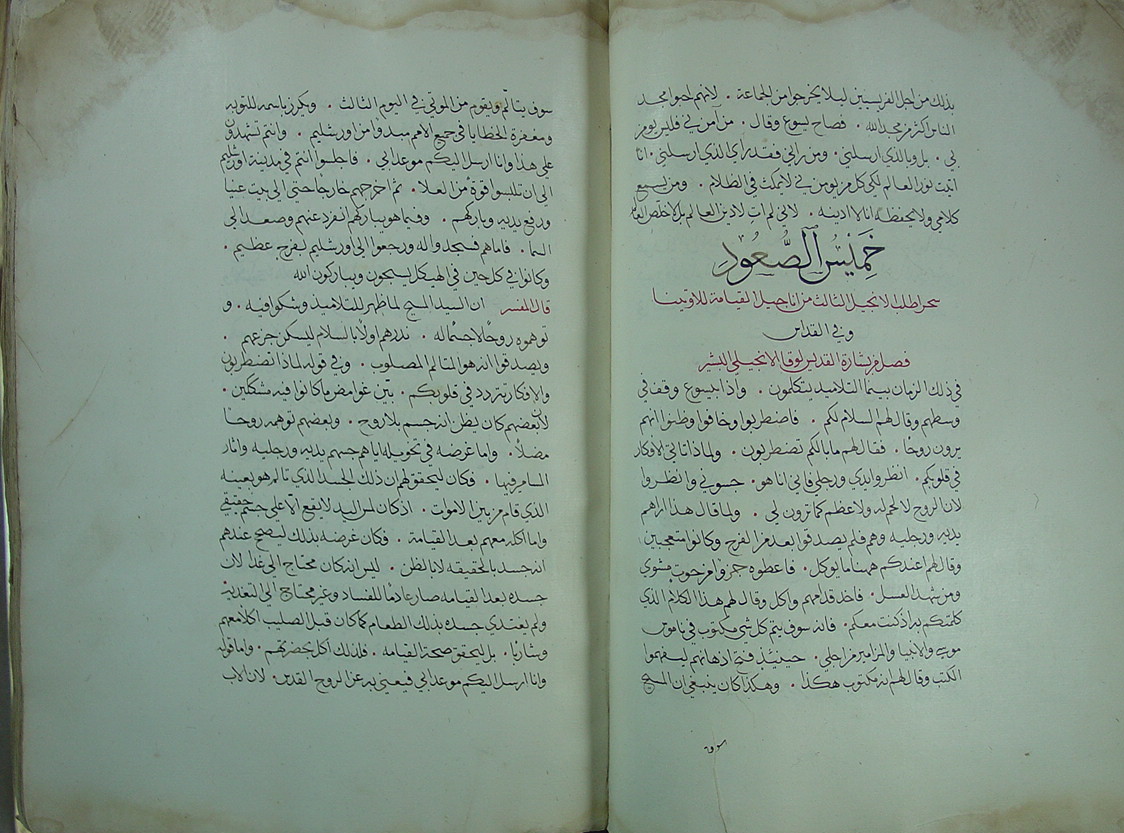 بذلك من اجل الفريسيين ليلا يخرجوا من الجماعة . لانهم احبوا مجد
الناس اكثر من مجد الله . فصاح يسوع وقال . من آمن بي فليس يومن
بي . بل وبالذي ارسلني . ومن راني فقد راي الذي ارسلني . انا
اتيت نور العالم لكي كل من يومن بي لا يمكث في الظلام . ومن يسمع
كلامي ولا يحفظه انا لا ادينه . لاني لم اتِ لادين العالم بل لاخلص العالم
خَمِيْسُ الصُّعُود
سحرًا طلب الانجيل الثالث من اناجيل القيامة للاوتينا
وفي القداس
فصل من بشارة القديس لوقا الانجيلي البشير
في ذلك الزمان بينما التلاميذ يتكلمون . واذا بيسوع وقف في
وسطهم وقال لهم السلام لكم . فاضطربوا وخافوا وظنوا انهم
يرون روحًا . فقال لهم ما بالكم تضطربون . ولماذا تاتي الافكار
في قلوبكم . انظروا يدي ورجلي فاني انا هو . جسوني وانظروا
لان الروح لا لحم له ولا عظم كما ترون لي . ولما قال هذا اراهم
يديه ورجليه وهم فلم يصدقوا بعد من الفرح وكانوا متعجبين
وقال لهم اعندكم ههنا ما يوكل . فاعطوه جزوا من حوت مشوي
ومن شهد العسل . فاخذ قدامهم واكل وقال لهم هذا الكلام الذي
كلمتكم به اذ كنت معكم . فانه سوف يتم كل شي مكتوب في ناموس
موسي والانبيا والمزامير من اجلي . حينيذٍ فتح اذهانهم ليفهموا
الكتب وقال لهم انه مكتوب هكذا . وهكذا كان ينبغي ان المسيح
سوف
سوف يتالم ويقوم من الموتي في اليوم الثالث . ويكرز باسمه للتوبه
ومغفرة الخطايا في جميع الامم مبدوا من اورشليم . وانتم تشهدون
علي هذا وانا ارسل اليكم موعد ابي . فاجلسوا انتم في مدينة اورشليم
الي ان تلبسوا قوة من العلا . ثم اخرجهم خارجا حتي الي بيت عنيا
ورفع يديه وباركهم . وفيما هو يباركهم انفرد عنهم وصعد الي
السما . فاما هم فسجدوا له ورجعوا الي اورشليم بفرح عظيم .
وكانوا في كل حين في الهيكل يسبحون ويباركون الله
قال المفسر ان السيد المسيح لما ظهر للتلاميذ وشكوا فيه . و
توهموه روحًا لا جثمًا له . بدرهم اولًا بالسلام ليسكن جزعهم .
ويصدقوا انه هو المتالم المصلوب . وفي قوله لماذا تضطربون
والافكار تتردد في قلوبكم . بيّن غوامض ما كانوا فيه مشككين .
لان بعضهم كان يظن انه جسم بلا روح . وبعضهم توهمه روحا
مضلًا . واما غرضه في تخويله اياهم جسهم يديه ورجليه واثار
المسامير فيها . فكان ليحقق لهم ان ذلك الجسد الذي تالم هو بعينه
الذي قام من بين الاموات . اذ كان لمس اليد لا يقع الا علي جسم حقيقي
واما اكله معهم بعد القيامة . فكان غرضه بذلك ليصح عندهم
انه جسد بالحقيقه لا بالظن . ليس انه كان محتاج الي غذا لان
جسده بعد القيامه صار عادمًا للفساد وغير محتاج الي التغديه
ولم يغتدي جسده بذلك الطعام كما كان قبل الصليب اكلًا معهم
وشاربًا . بل ليحقق صحة القيامه . فلذلك اكل بحضرتهم . واما قوله
وانا ارسل اليكم موعد ابي فيعني به عن الروح القدس . لان الاب